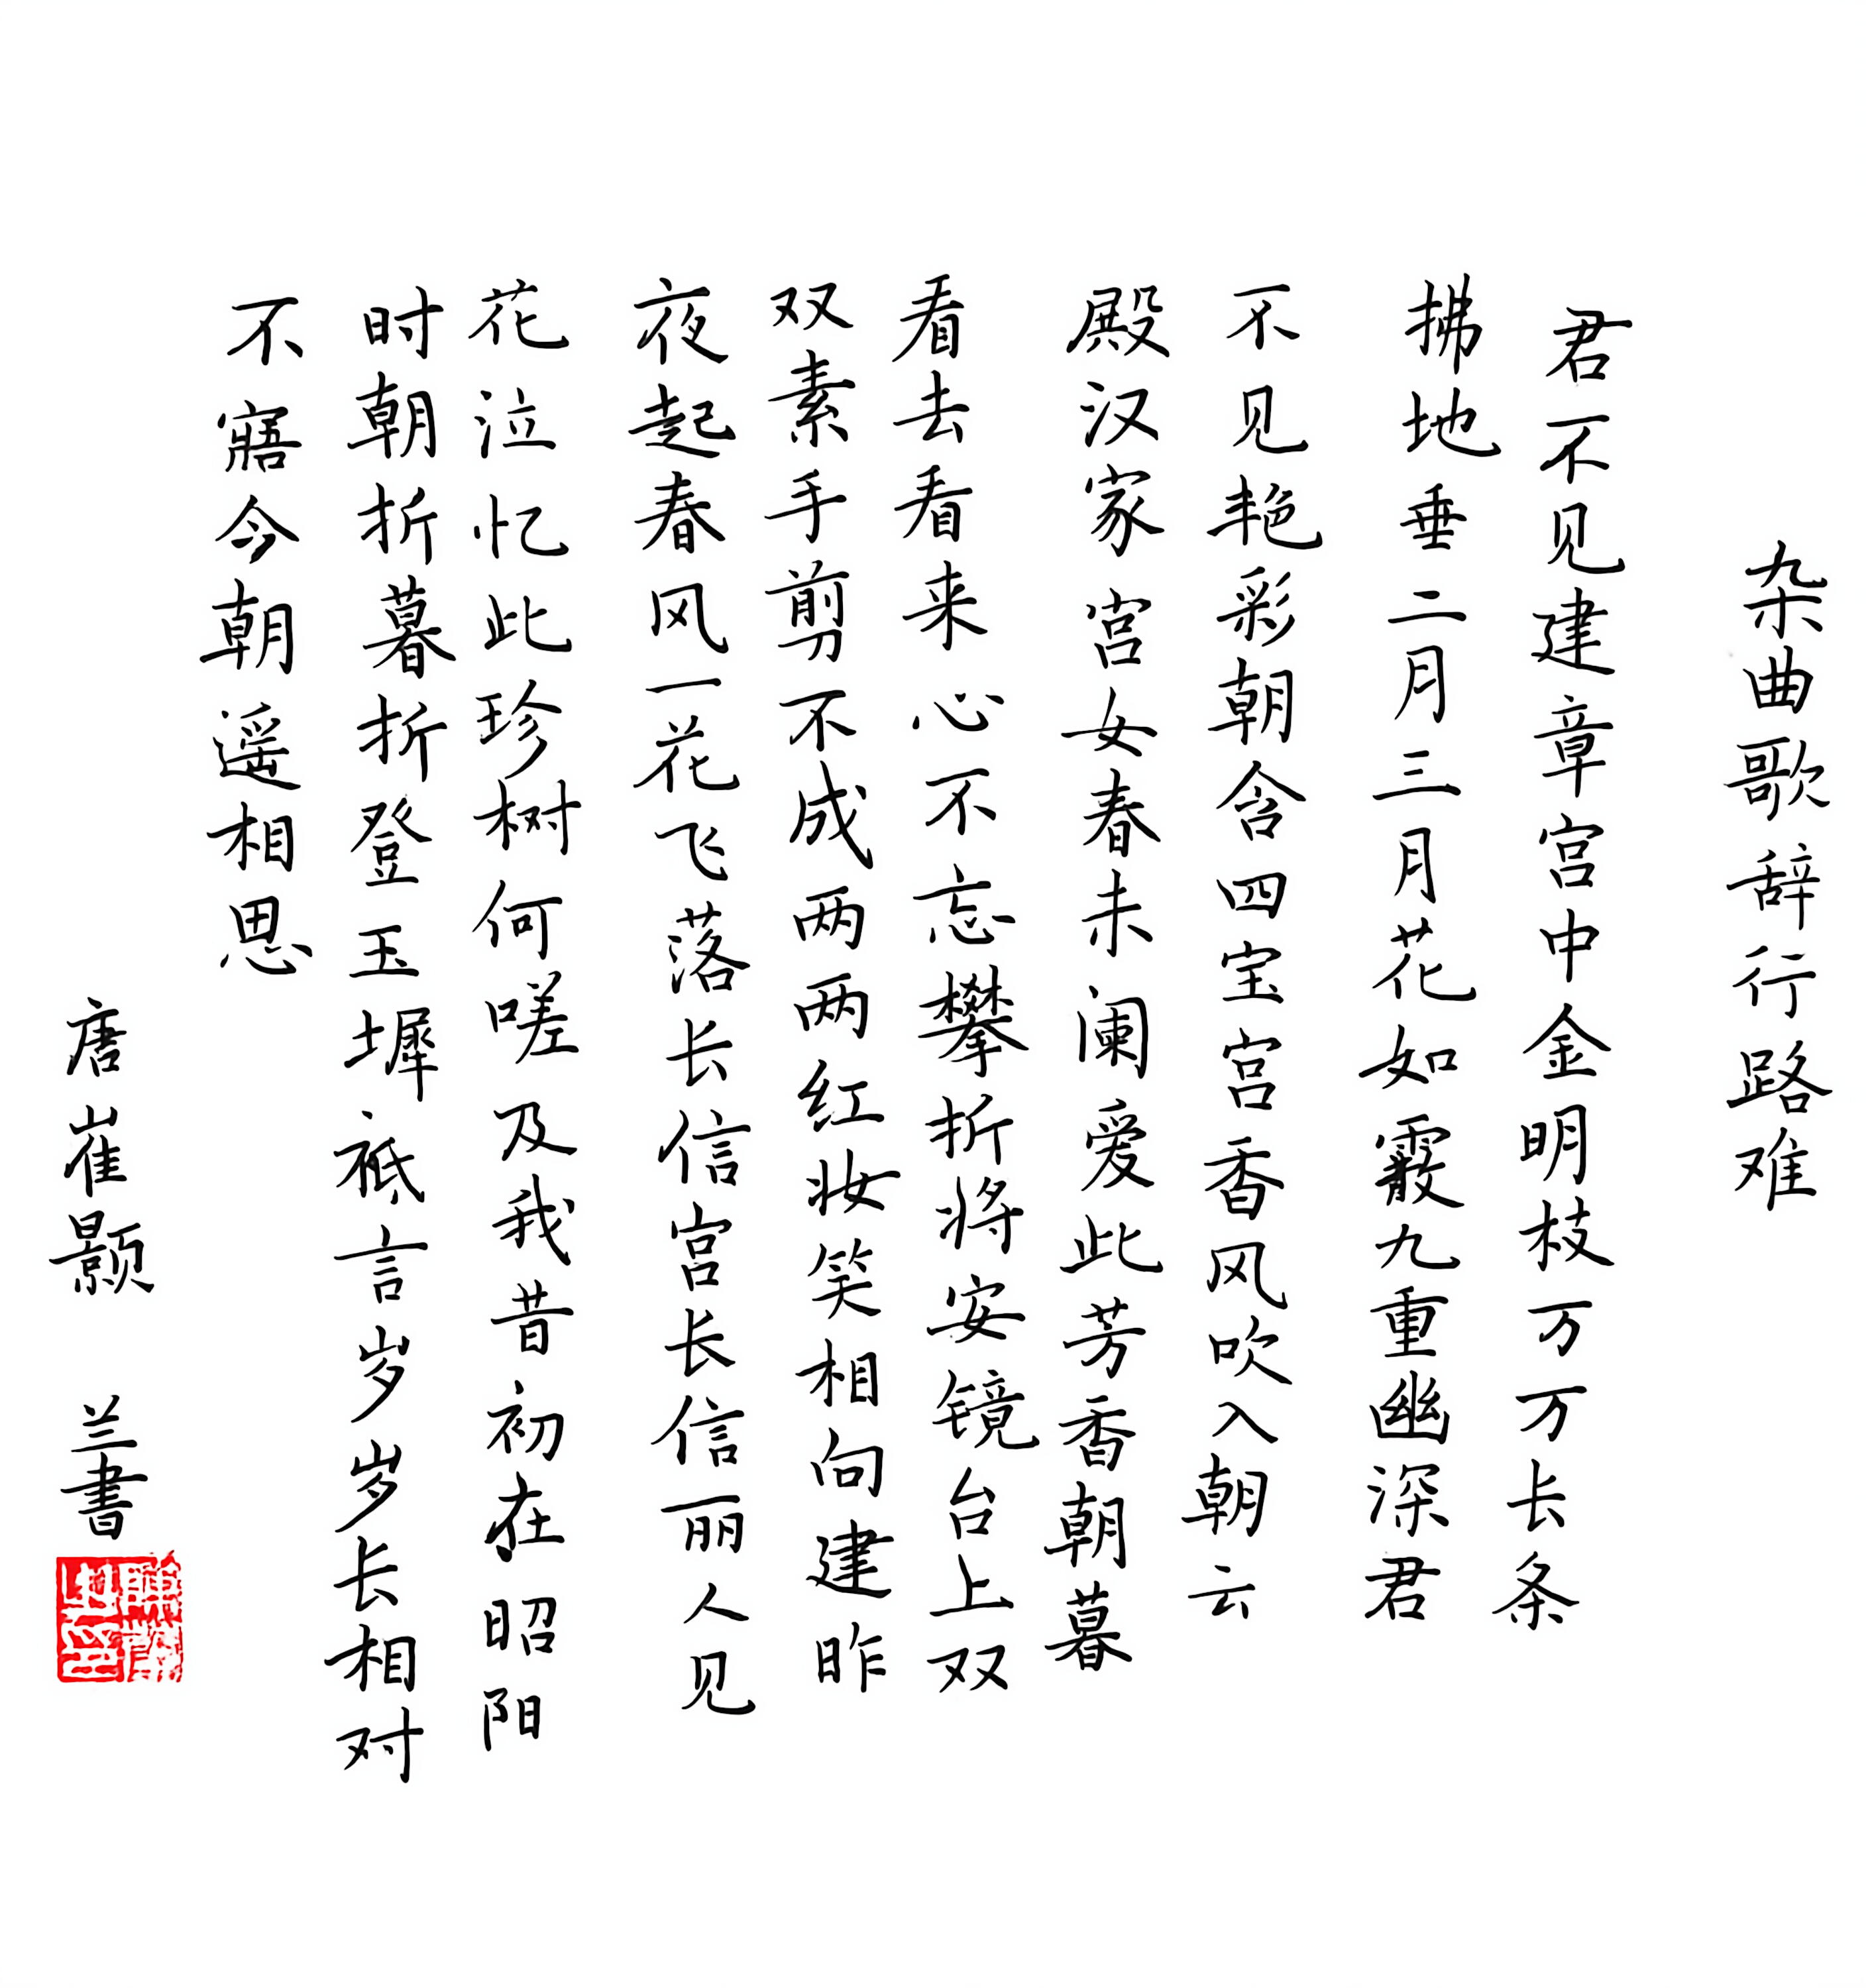 杂曲歌辞行路难
君不见建章宫中金明枝万万长条
拂地垂二月三月花如霰九重幽深君
不见艳彩朝含四宝宫香风吹入朝云
殿汉家宫女春未阑爱此芳香朝暮
看去看来心不忘攀折将安镜台上双
双素手剪不成两两红妆笑相向建昨
夜起春风一花飞落长信宫长信丽人见
花泣忆此珍树何嗟及我昔初在昭阳
时朝折暮折登玉墀祇言岁岁长相对
不寤今朝遥相思
唐崔颢 兰書